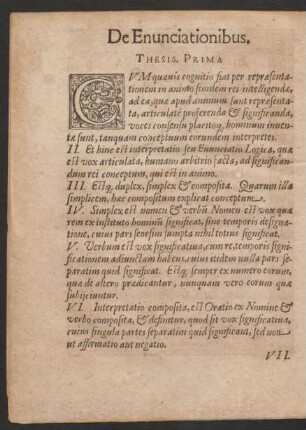 De Enunciationibus.
THESIS. PRIMA
CVM quævis cognitio fiat per repræsenta-
tionem in animo similem rei intelligendæ,
ad ea, quæ apud animum sunt repræsenta-
ta, articulatè proferenda & significanda,
voces consensu placitoq; hominum inven-
tæ sunt, tanquam conceptuum earundem interpretes.
II. Et hinc est interpretatio seu Enunciatio Logica, quæ
est vox articulata, humano arbitrio facta, ad significan-
dum rei conceptum, qui est in animo.
III. Estq; duplex, simplex & composita. Quarum illa
simplicem, hæc compositum explicat conceptum.
IV. Simplex est nomen & verbū. Nomen est vox quæ
rem ex instituto hominū significat, sine temporis designa-
tione, cuius pars seorsim sumpta nihil totius significat.
V. Verbum est vox significativa, cum re, temporis signi-
ficationem adiunctam habens, cuius itidem nulla pars se-
paratim quid significat. Estq; semper ex numero eorum,
quæ de altero prædicantur, nunquam vero eorum quæ
subijciuntur.
VI. Interpretatio composita, est Oratio ex Nomine &
verbo composita, & definitur, quod sit vox significativa,
cuius singulæ partes separatim quid significant, sed non
ut affirmatio aut negatio.
VII.